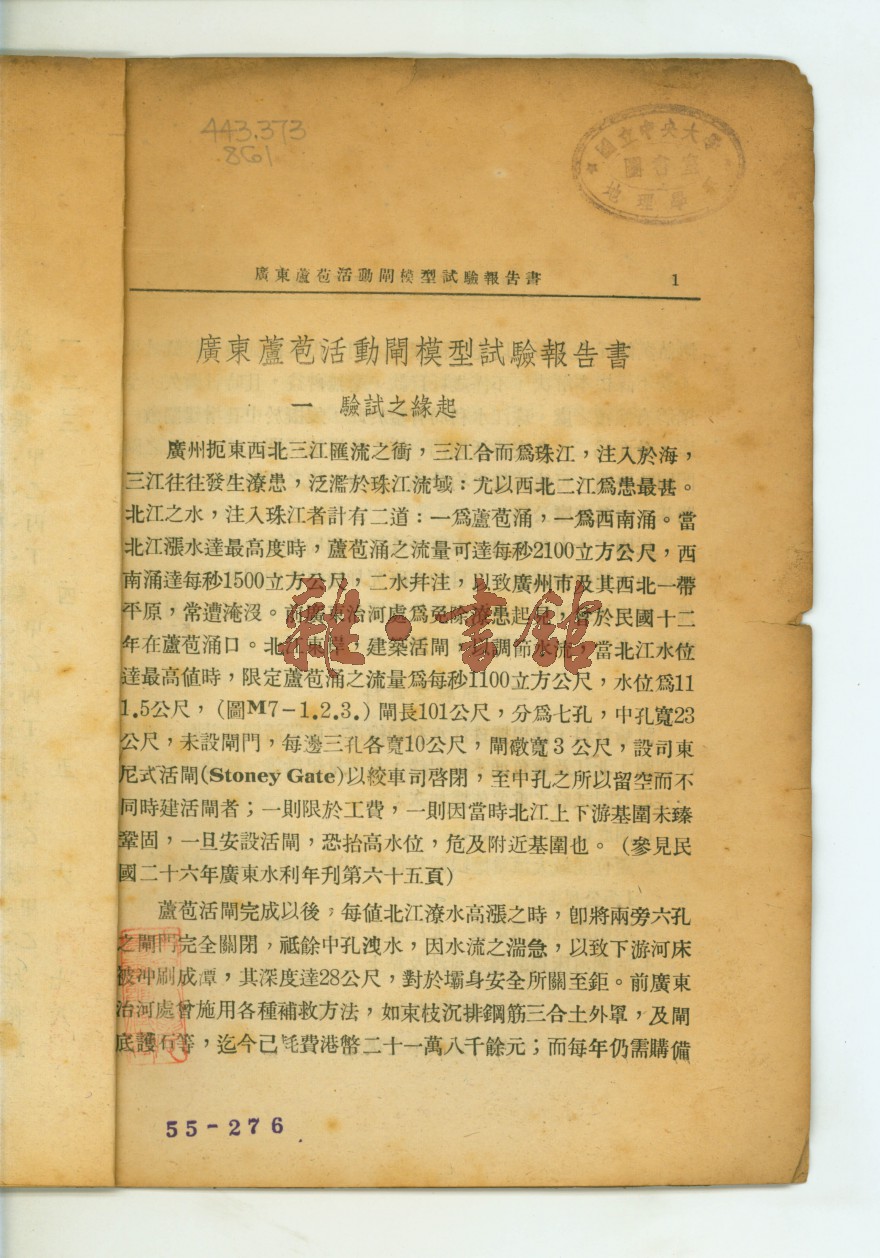 443.373
.861
廣東蘆苞活動閘模型試驗報告書 1
廣東蘆苞活動閘模型試驗報告書
一 驗試之緣起
廣州扼東西北三江匯流之衝，三江合而爲珠江，注入於海，
三江往往發生潦患，泛濫於珠江流域：尤以西北二江爲患最甚。
北江之水，注入珠江者計有二道：一爲蘆苞涌，一爲西南涌。當
北江漲水達最高度時，蘆苞涌之流量可達每秒2100立方公尺，西
南涌達每秒1500立方公尺，二水幷注，以致廣州市及其西北一帶
平原，常遭淹沒。前廣東治河處爲免除潦患起見，曾於民國十二
年在蘆苞涌口。北江東岸，建築活閘，以調節水流，當北江水位
達最高値時，限定蘆苞涌之流量爲每秒1100立方公尺，水位爲11
1.5公尺，(圖M7-1.2.3.)閘長101公尺，分爲七孔，中孔寬23
公尺，未設閘門，每邊三孔各寬10公尺，閘礅寬3公尺，設司東
尼式活閘(Stoney Gate)以絞車司啓閉，至中孔之所以留空而不
同時建活閘者；一則限於工費，一則因當時北江上下游基圍未臻
鞏固，一旦安設活閘，恐抬高水位，危及附近基圍也。(參見民
國二十六年廣東水利年刊第六十五頁)
蘆苞活閘完成以後，每値北江潦水高漲之時，卽將兩旁六孔
之閘門完全關閉，祗餘中孔洩水，因水流之湍急，以致下游河床
被冲刷成潭，其深度達28公尺，對於壩身安全所關至鉅。前廣東
治河處曾施用各種補救方法，如束枝沉排鋼筋三合土外罩，及閘
底護石等，迄今已耗費港幣二十一萬八千餘元；而每年仍需購備
雅·書館
55-276